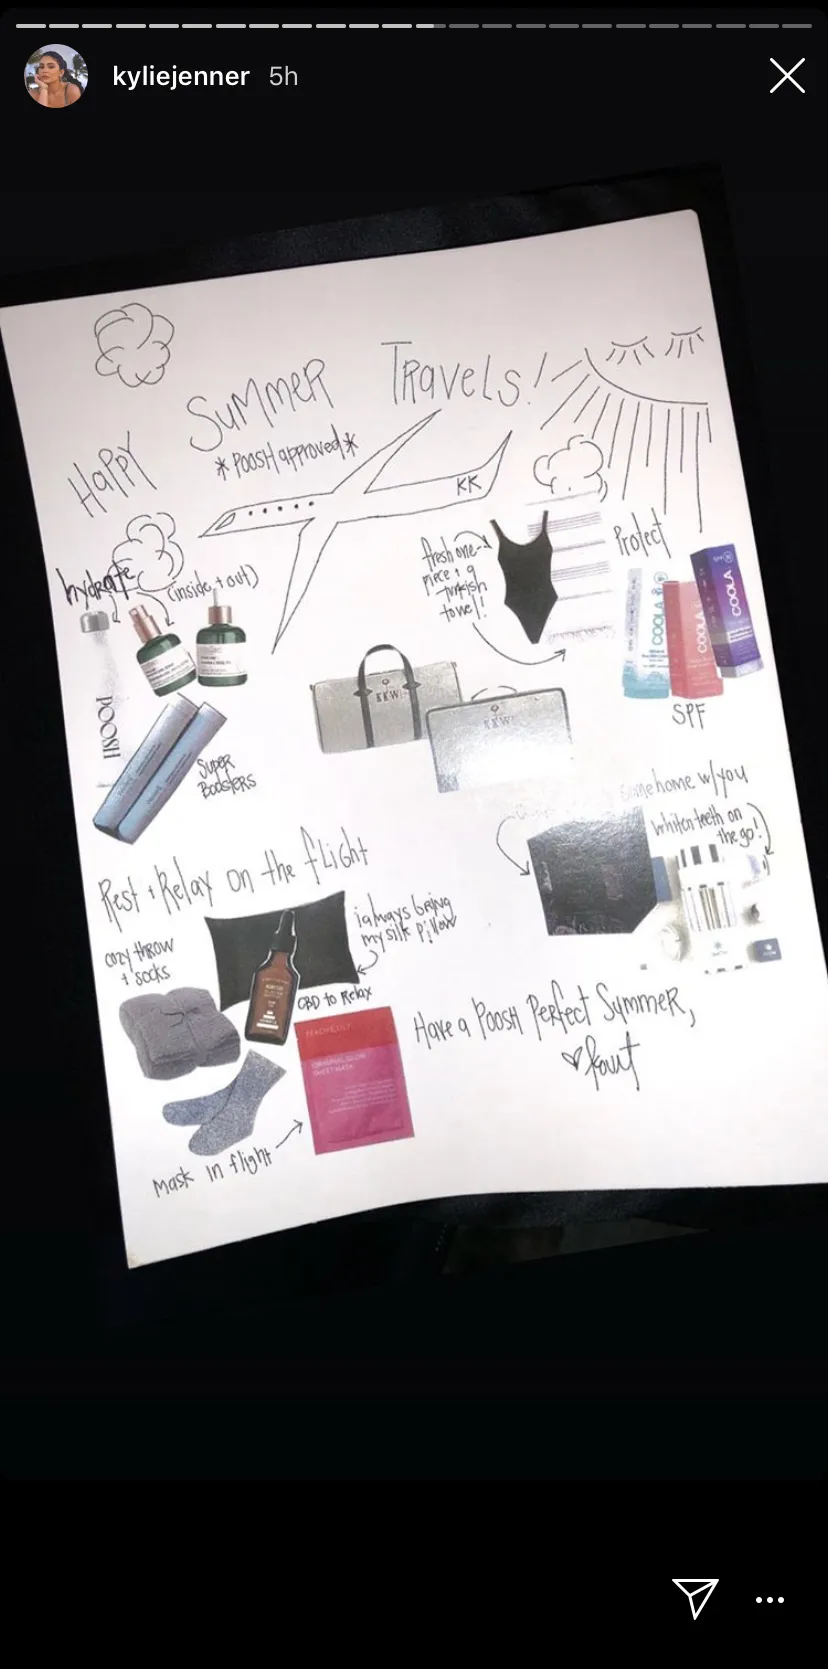 kyliejenner 5h
HAPPY SUMMER TRAVELS!
*POOSH approved*
KK
hydrate
(inside + out)
POOSH
SUPER
BOOSTERS
fresh one
piece + a
turkish
towel!
Protect
COOLA
COOLA
COOLA
SPF
KKW
KKW
home w/you
Whiten teeth on
the go!
Rest + Relax on the flight
cozy throw
+ socks
i always bring
my silk pillow
CBD to Relax
ORIGINAL GLOW
SHEET MASK
mask in flight
Have a POOSH Perfect Summer,
♡ kourt